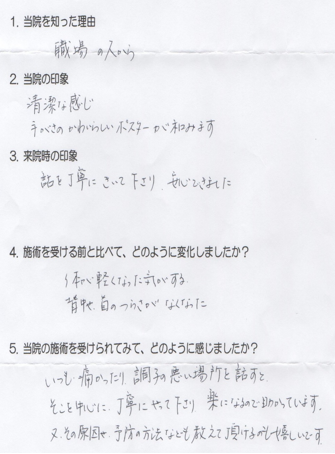 1. 当院を知った理由
職場の人から
2. 当院の印象
清潔な感じ
手がきのかわいらしいポスターが和みます
3. 来院時の印象
話を丁寧にきいて下さり 安心できました
4. 施術を受ける前と比べて、どのように変化しましたか？
体が軽くなった気がする
背中や、首のつらさがなくなった
5. 当院の施術を受けられてみて、どのように感じましたか？
いつも痛かったり、調子の悪い場所を話すと、
そこを中心に、丁寧にやって下さり 楽になるので助かっています。
又、その原因や、予防の方法なども教えて頂けるのも嬉しいです。